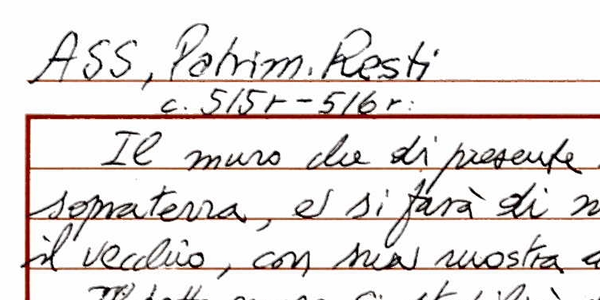 ASS, Patrim. Resti
c. 515r - 516r:
Il muro che di presente
sopraterra, et si farà di
il vecchio, con sua mostra